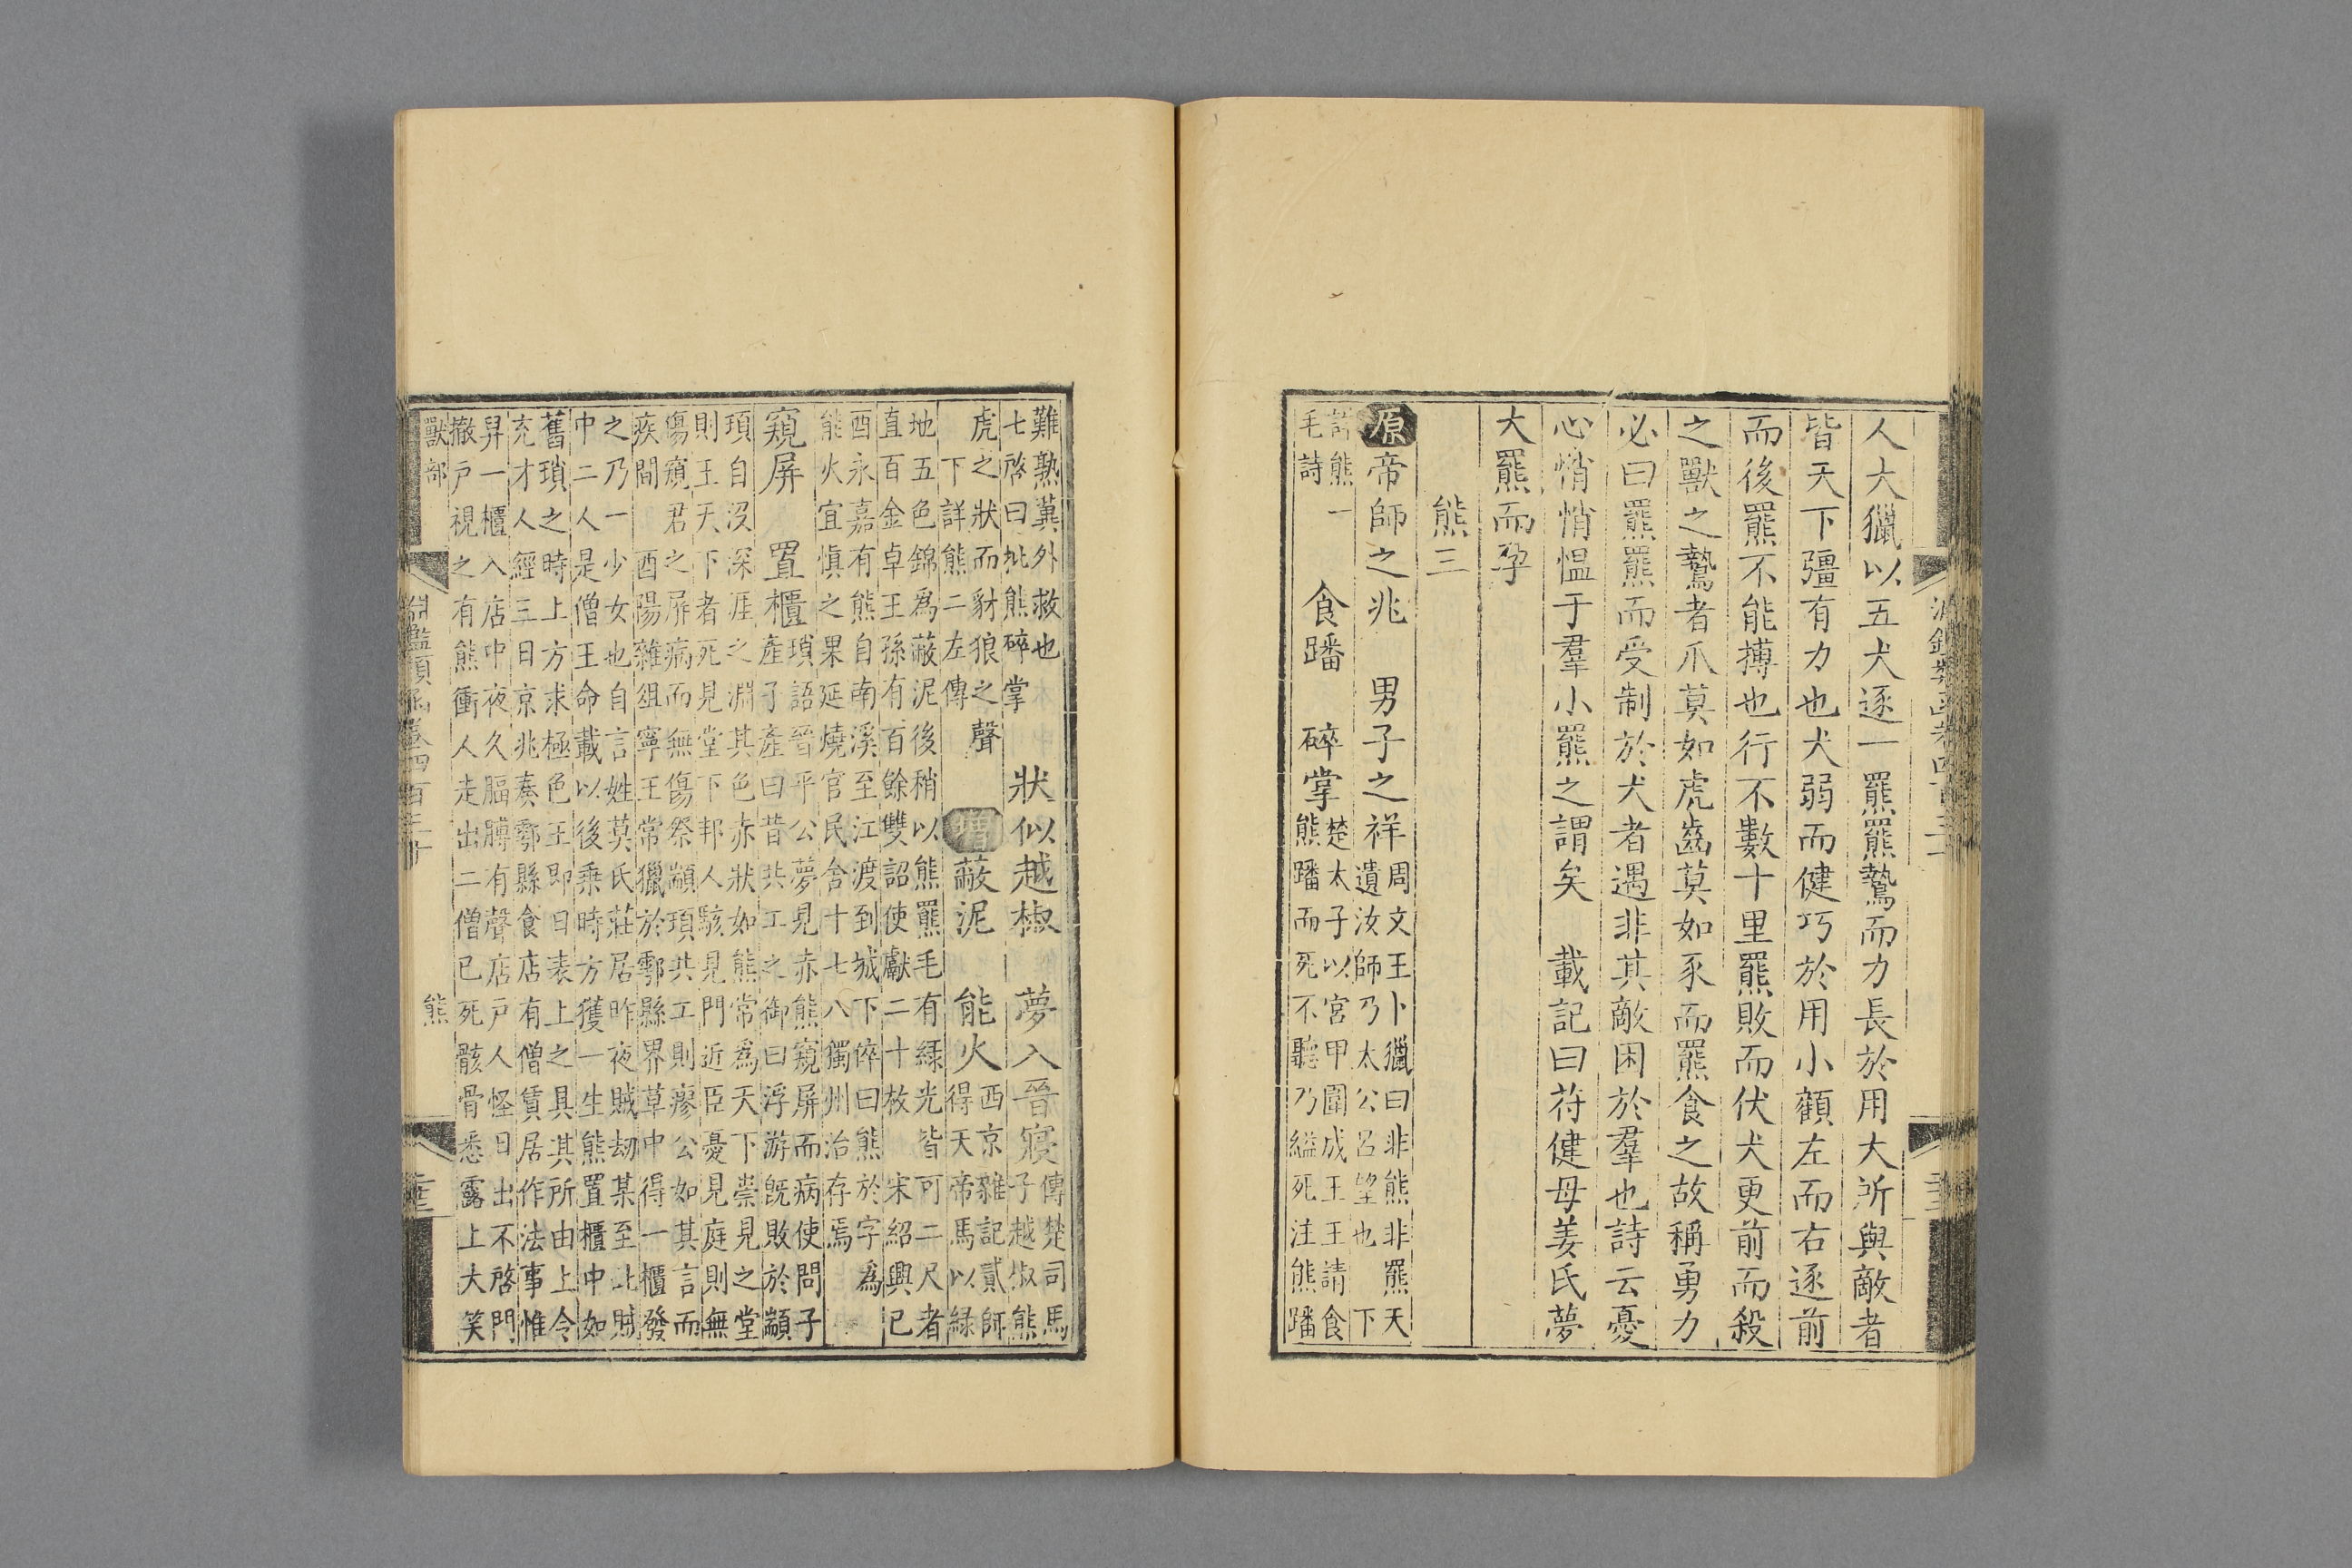 人大獵以五犬逐一羆羆鷙而力長於用大所與敵者
皆天下彊有力也犬弱而健巧於用小顧左而右逐前
而後羆不能搏也行不數十里羆敗而伏犬更前而殺
之獸之鷙者爪莫如虎齒莫如豕而羆食之故稱勇力
必曰羆羆而受制於犬者遇非其敵困於羣也詩云憂
心悄悄慍于羣小羆之謂矣　載記曰苻健母姜氏夢
大羆而孕
熊三
原帝師之兆　男子之祥周文王卜獵曰非熊非羆天
遺汝師乃太公呂望也　下
詳熊一
毛詩　食蹯　碎掌楚太子以宮甲圍成王王請食
熊蹯而死不聽乃縊死注熊蹯
難熟冀外救也
七啓曰批熊碎掌　狀似越椒　夢入晉寢傳楚司馬
子越椒熊
虎之狀而豺狼之聲
下詳熊二左傳　增蔽泥　能火西京雜記貳師
得天帝馬以綠
地五色錦爲蔽泥後稍以熊羆毛有綠光皆可二尺者
直百金卓王孫有百餘雙詔使獻二十枚　宋紹興已
酉永嘉有熊自南溪至江渡到城下倅曰熊於字爲
能火宜愼之果延燒官民舍十七八獨州治存焉
窺屏　置櫃瑣語晉平公夢見赤熊窺屏而病使問子
產子產曰昔共工之御曰浮游旣敗於顓
頊自沒深淮之淵其色赤狀如熊常爲天下祟見之堂
則王天下者死見堂下邦人駭見門近臣憂見庭則無
傷窺君之屏病而無傷祭顓頊共工則瘳公如其言而
疾間　酉陽雜俎寧王常獵於鄠縣界草中得一櫃發
之乃一少女也自言姓莫氏莊居昨夜賊劫某至此賊
中二人是僧王命載以後乘時方獲一生熊置櫃中如
舊瑣之時上方求極色王卽日表上之具其所由上令
充才人經三日京兆奏鄠縣食店有僧賃居作法事惟
舁一櫃入店中夜久膈膊有聲店戶人怪日出不啓門
撤戶視之有熊衝人走出二僧已死骸骨悉露上大笑
獸部　熊
淵鑑類函卷四百三十